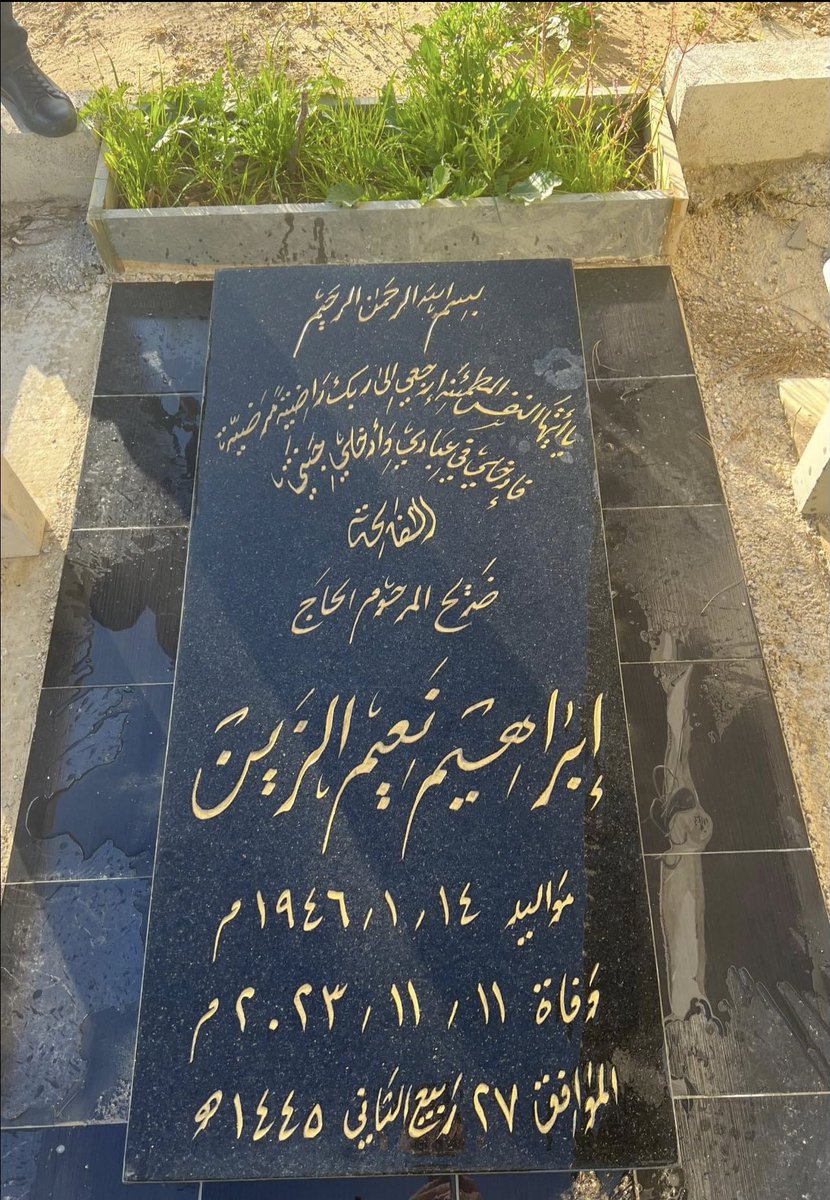 بسم الله الرحمن الرحيم
يا أيتها النفس المطمئنة إرجعي إلى ربك راضية مرضية
فإدخلي في عبادي وأدخلي جنتي
الفاتحة
ضريح المرحوم الحاج
إبراهيم نعيم الزين
مواليد ١٤ / ١ / ١٩٤٦ م
وفاة ١١ / ١١ / ٢٠٢٣ م
الموافق ٢٧ ربيع الثاني ١٤٤٥ ه